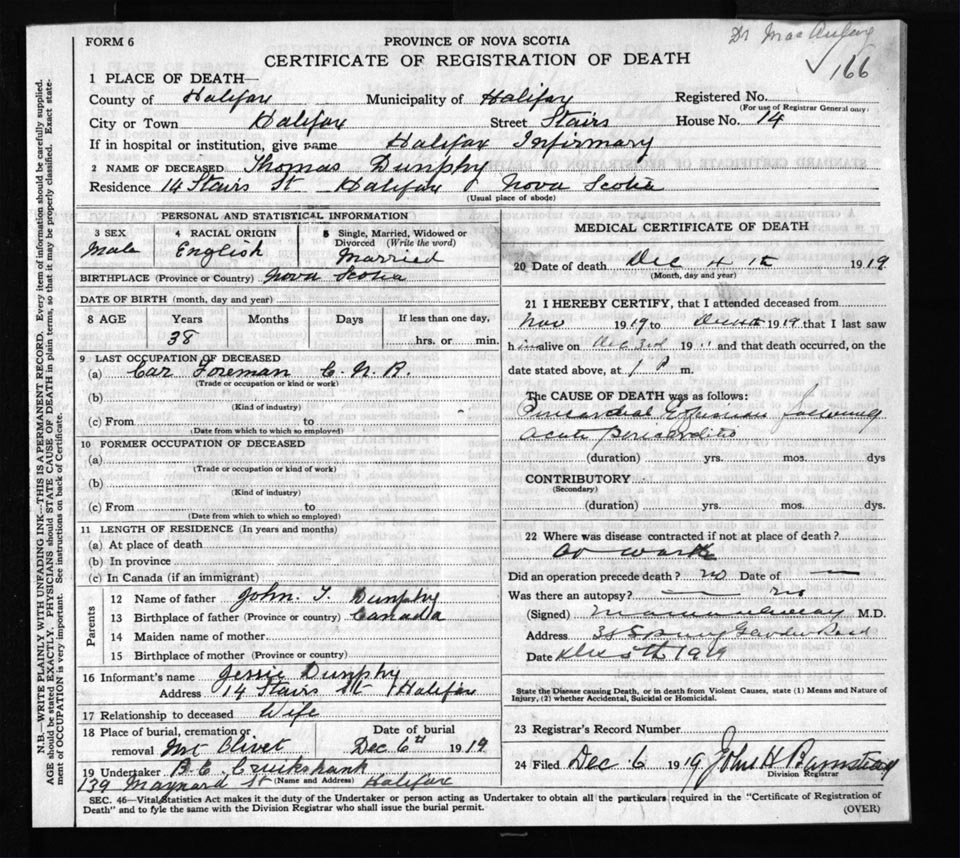 Dr MacAulay
166
FORM 6
PROVINCE OF NOVA SCOTIA
CERTIFICATE OF REGISTRATION OF DEATH
1 PLACE OF DEATH—
County of Halifax Municipality of Halifax Registered No.
(For use of Registrar General only)
City or Town Halifax Street Stairs House No. 14
If in hospital or institution, give name Halifax Infirmary
2 NAME OF DECEASED Thomas Dunphy
Residence 14 Stairs St Halifax Nova Scotia
(Usual place of abode)
PERSONAL AND STATISTICAL INFORMATION
3 SEX 4 RACIAL ORIGIN 5 Single, Married, Widowed or Divorced (Write the word)
Male English Married
BIRTHPLACE (Province or Country) Nova Scotia
DATE OF BIRTH (month, day and year)
8 AGE Years Months Days If less than one day,
38 hrs. or min.
9 LAST OCCUPATION OF DECEASED
(a) Car Foreman C. N. R.
(Trade or occupation or kind or work)
(b)
(Kind of industry)
(c) From to
(Date from which to which so employed)
10 FORMER OCCUPATION OF DECEASED
(a)
(Trade or occupation or kind of work)
(b)
(Kind of industry)
(c) From to
(Date from which to which so employed)
11 LENGTH OF RESIDENCE (In years and months)
(a) At place of death
(b) In province
(c) In Canada (if an immigrant)
Parents
12 Name of father John. T. Dunphy
13 Birthplace of father (Province or country) Canada
14 Maiden name of mother
15 Birthplace of mother (Province or country)
16 Informant's name Jessie Dunphy
Address 14 Stairs St Halifax
17 Relationship to deceased Wife
18 Place of burial, cremation or removal Mt Olivet
Date of burial Dec 6th 1919
19 Undertaker B. E. Cruikshank
139 Maynard St (Name and Address) Halifax
MEDICAL CERTIFICATE OF DEATH
20 Date of death Dec 4th 1919
(Month, day and year)
21 I HEREBY CERTIFY, that I attended deceased from
Nov 1919 to 1919 that I last saw
him alive on Dec 3rd 19 " and that death occurred, on the
date stated above, at 1 P m.
The CAUSE OF DEATH was as follows:
Pericardial Effusion following
acute pericarditis
(duration) yrs. mos. dys
CONTRIBUTORY
(Secondary)
(duration) yrs. mos. dys.
22 Where was disease contracted if not at place of death?
at work
Did an operation precede death? no Date of —
Was there an autopsy? — no
(Signed) M.D.
Address 38 Spring Garden Road
Date Dec 5th 1919
State the Disease causing Death, or in death from Violent Causes, state (1) Means and Nature of
Injury, (2) whether Accidental, Suicidal or Homicidal.
23 Registrar's Record Number
24 Filed Dec. 6 1919 John H Barnstead
Division Registrar
SEC. 46—Vital Statistics Act makes it the duty of the Undertaker or person acting as Undertaker to obtain all the particulars required in the "Certificate of Registration of
Death" and to fyle the same with the Division Registrar who shall issue the burial permit.
(OVER)
N.B.—WRITE PLAINLY WITH UNFADING INK—THIS IS A PERMANENT RECORD. Every item of information should be carefully supplied.
AGE should be stated EXACTLY. PHYSICIANS should STATE CAUSE OF DEATH in plain terms, so that it may be properly classified. Exact state-
ment of OCCUPATION is very important. See instructions on back of Certificate.